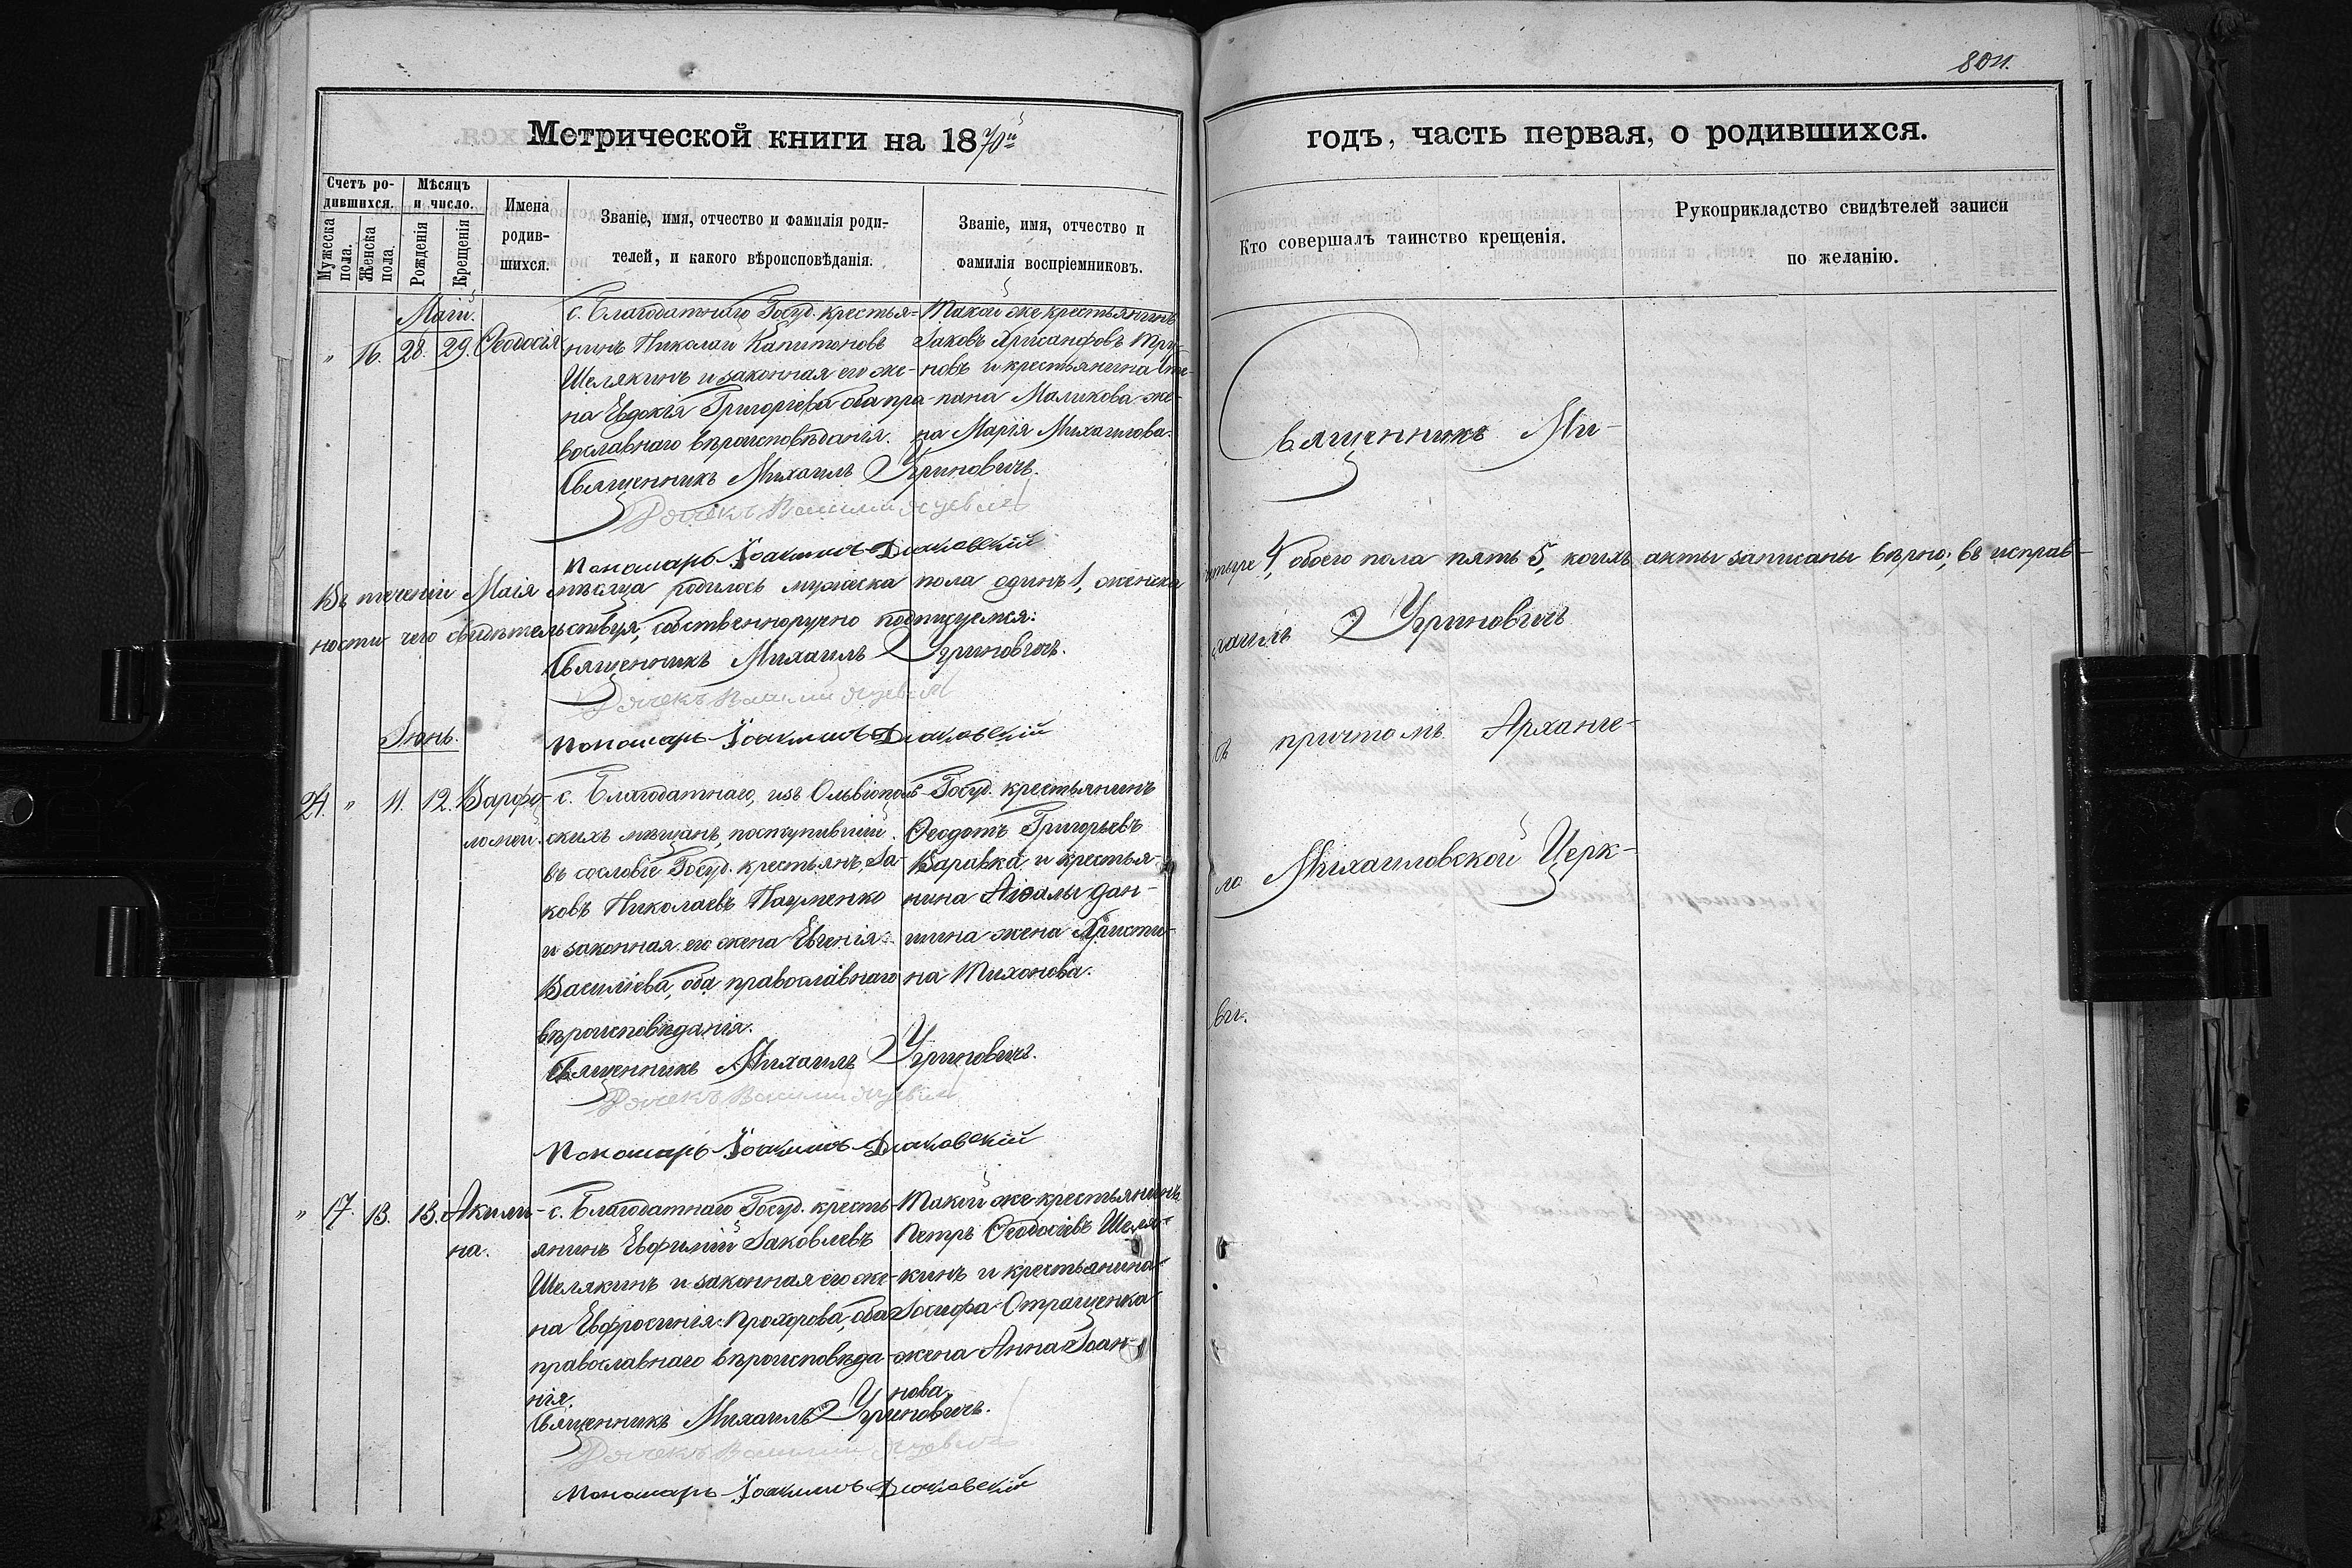 804.
Метрической книги на 1870й
годъ, часть первая, о родившихся.
Счетъ родившихся.
Мужеска пола.
Женска пола.
Мѣсяцъ и число.
Рожденія
Крещенія
Имена родившихся.
Званіе, имя, отчество и фамилія родителей, и какого вѣроисповѣданія.
Званіе, имя, отчество и фамилія воспріемниковъ.
Кто совершалъ таинство крещенія.
Рукоприкладство свидѣтелей записи по желанію.
Маій.
" 16. 28. 29. Ѳеодосія
с. Благодатнаго Госуд. крестья-
нинъ Николай Капитоновъ
Шелякинъ и законная его же-
на Евдокія Григоріева оба пра-
вославнаго вѣроисповѣданія.
Такой же крестьянинъ
Іаковъ Хрисанфовъ Тру-
новъ и крестьянина Сте-
пана Маликова же-
на Марія Михаилова.
Священникъ Михаилъ Угриновичъ.
Дьячекъ Василій Яцевичъ
Пономарь Іоакимъ Діаковскій
Въ теченіи Маія мѣсяца родилось мужеска пола одинъ 1, женска
четыре 4, обоего пола пять 5, коихъ акты записаны вѣрно; въ исправ-
ности чего свидѣтельствуя, собственноручно подписуемся:
Священникъ Михаилъ Угриновичъ.
Дьячекъ Василій Яцевичъ
Пономарь Іоакимъ Діаковскій
Іюнь.
24. " 11. 12. Варфо-
ломей.
с. Благодатнаго, изъ Ольвіополь-
скихъ мѣщанъ, поступившій
въ сословіе Госуд. крестьянъ, Іа-
ковъ Николаевъ Науменко
и законная его жена Евгенія
Василіева, оба православнаго
вѣроисповѣданія.
Госуд. крестьянинъ
Ѳеодотъ Григорьевъ
Варавка и крестья-
нина
жена Христи-
на Тихонова.
Священникъ Михаилъ Угриновичъ.
Дьячекъ Василій Яцевичъ
Пономарь Іоакимъ Діаковскій
" 17. 13. 13. Акили-
на.
с. Благодатнаго Госуд. кресть-
янинъ Евфимій Іаковлевъ
Шелякинъ и законная его же-
на Евфросинія Прохорова, оба
православнаго вѣроисповѣда-
нія.
Такой же крестьянинъ
Петръ Ѳеодосіевъ Шеля-
кинъ и крестьянина
Іосифа Отращенка
жена Анна Іоан-
нова.
Священникъ Михаилъ Угриновичъ.
Дьячекъ Василій Яцевичъ
Пономарь Іоакимъ Діаковскій
Священникъ Ми-
хаилъ Угриновичъ
съ причтомъ Арханге-
ло Михаиловской Церк-
ви.